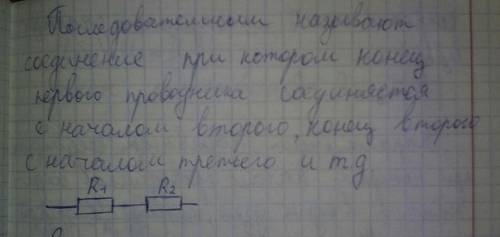 Последовательным называют
соединение при котором конец
первого проводника саединяется
с началом второго, конец второго
с началом третего и т.д
R1 R2